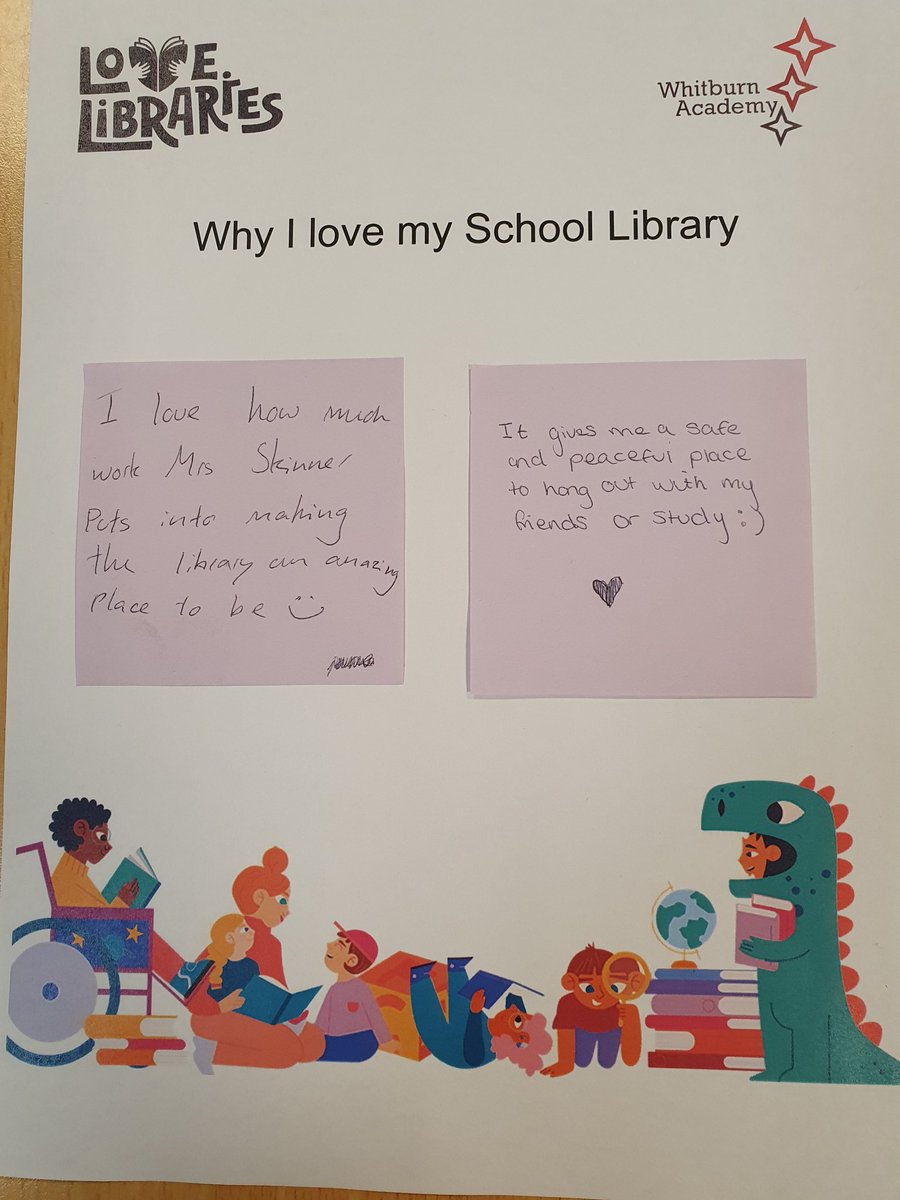 LOVE.
LiBRARiES
Whitburn
Academy
Why I love my School Library
I love how much
work Mrs Skinner
Puts into making
the library an amazing
Place to be
It gives me a safe
and peaceful place
to hang out with my
friends or study :)